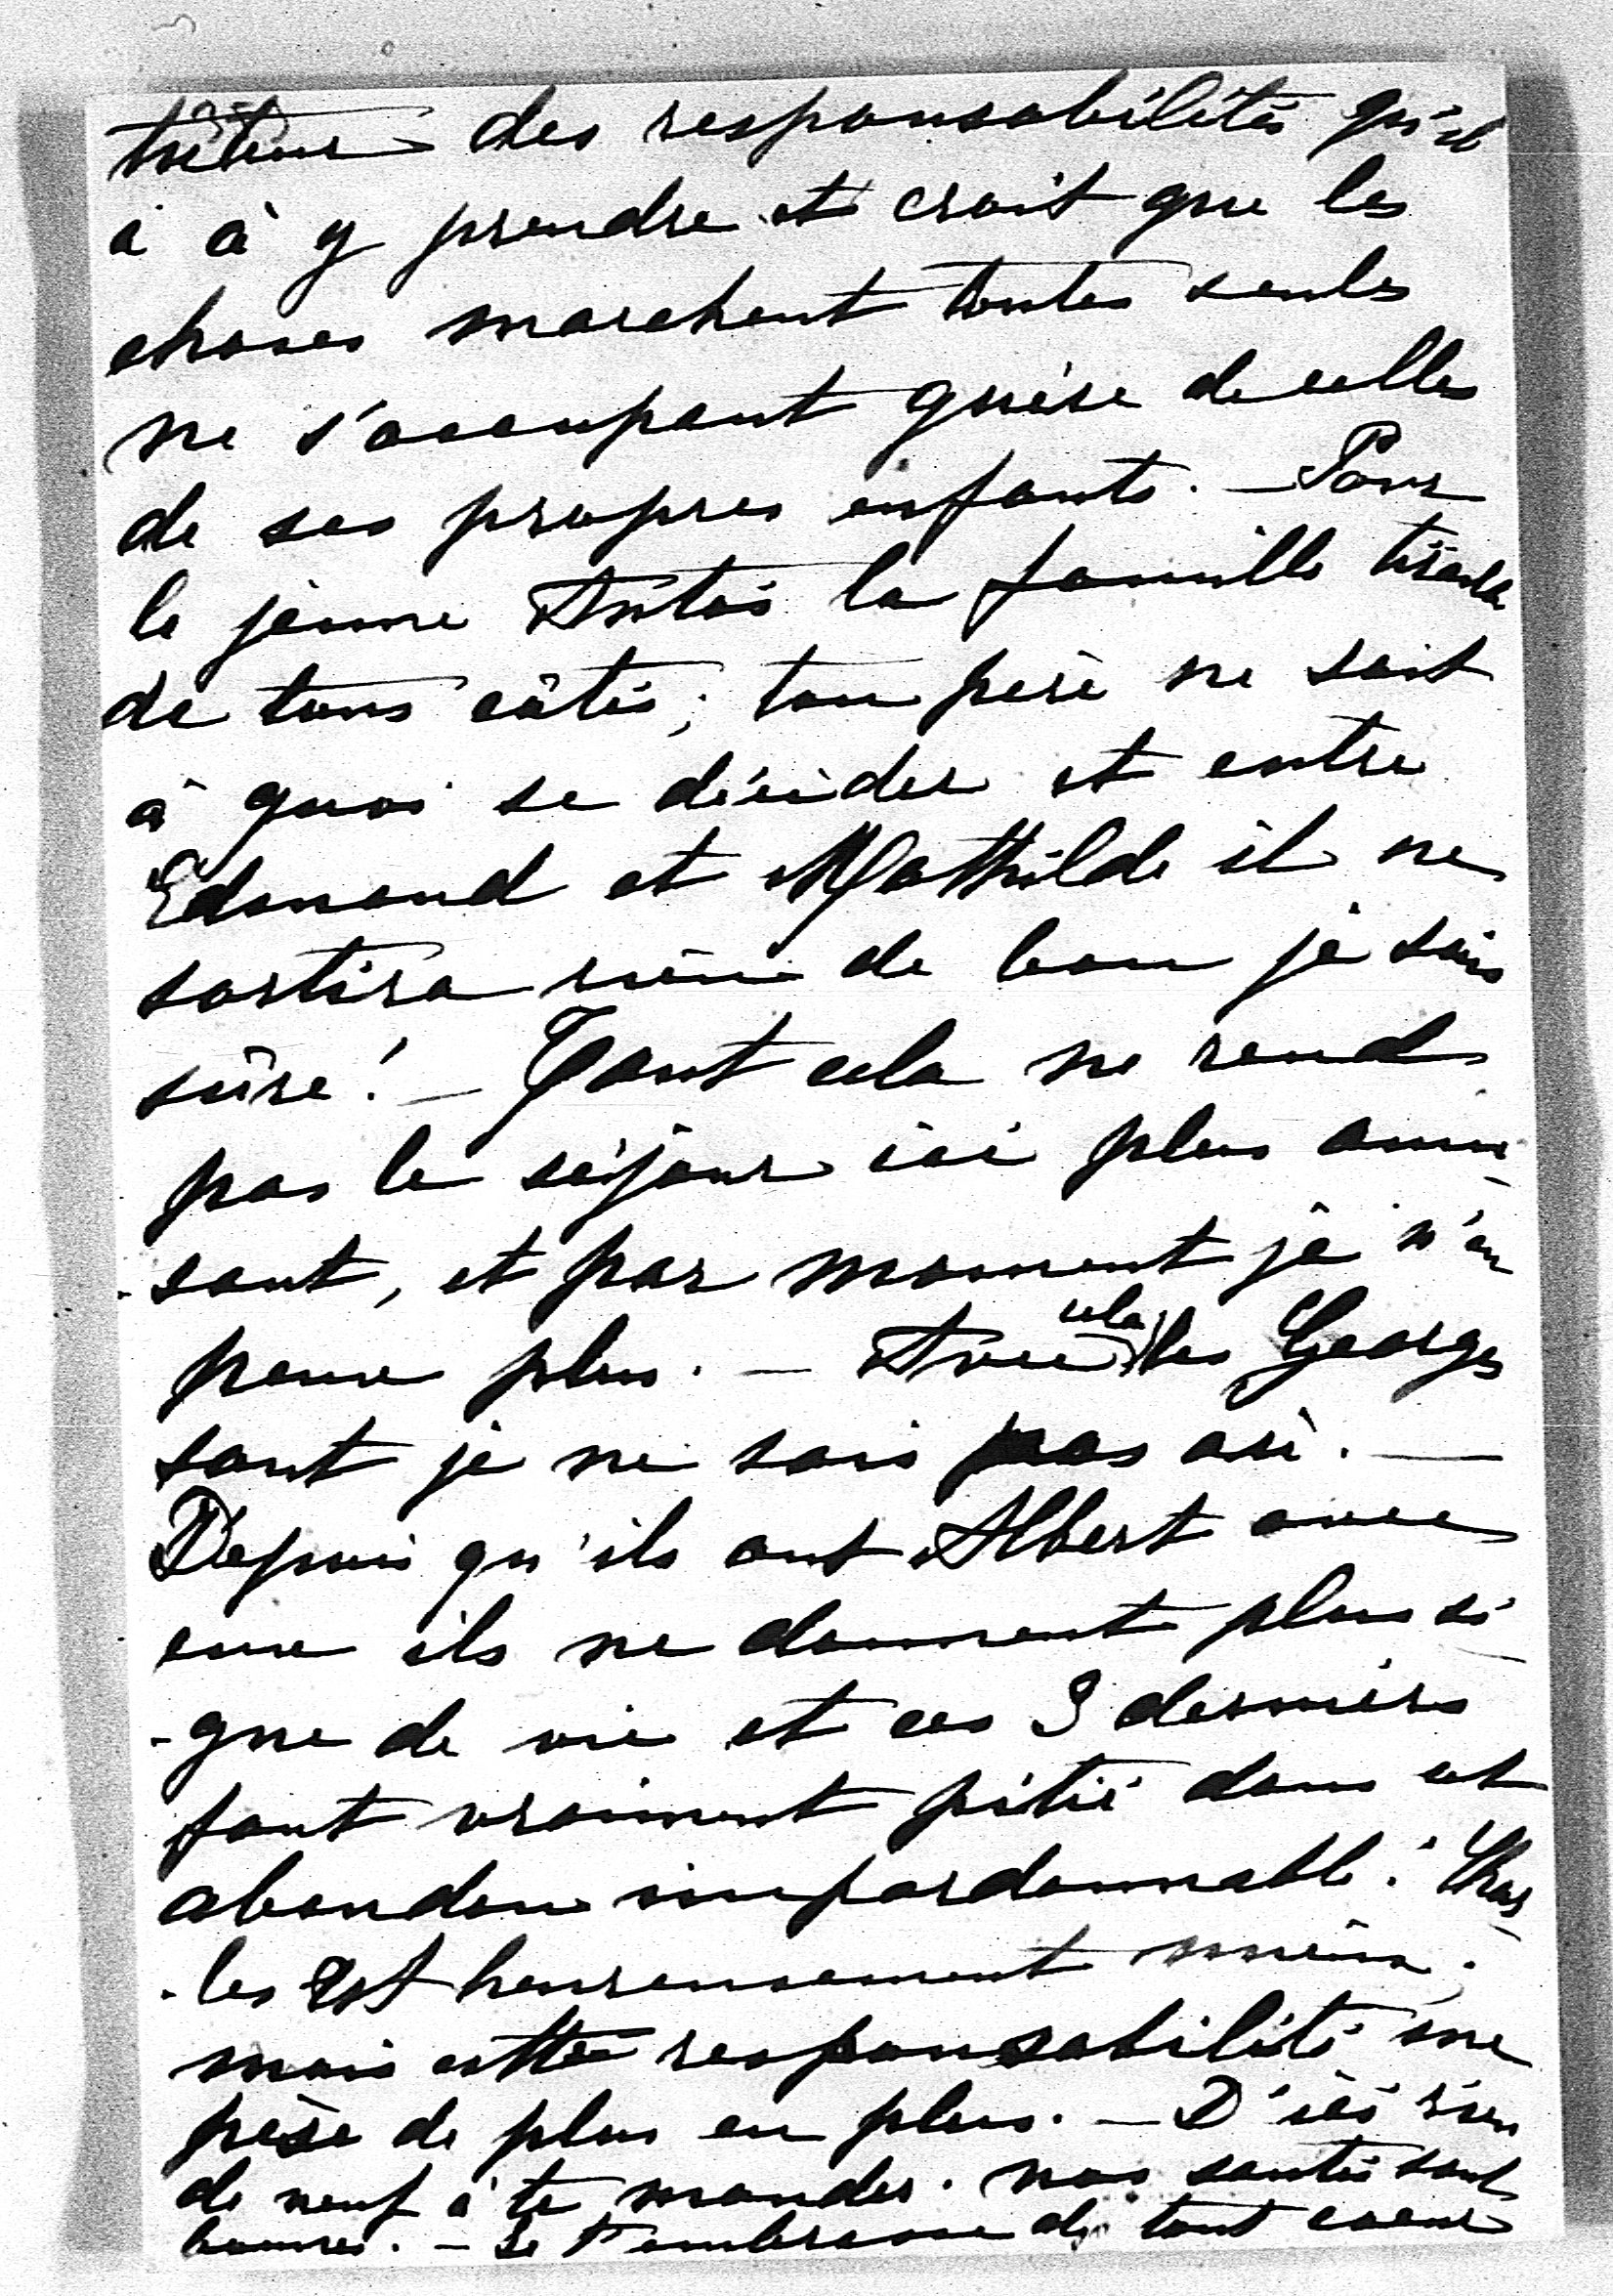 des responsabilités qu'il
a à y prendre et croit que les
choses marchent toutes seules
ne s'occupant guère de celles
de ses propres enfants. — Pour
le jeune la famille
de tous côtés; ton père ne sait
à quoi se décider et entre
Edmond et Mathilde il ne
sortira rien de bon je suis
sûre! — Tout cela ne rend
pas le séjour ici plus amu-
-sant, et par moment je n'en
peux plus. — Avec cela les Georges
sont je ne sais pas où. —
Depuis qu'ils ont Albert avec
eux ils ne donnent plus si-
-gne de vie et ces 3 derniers
font vraiment pitié dans cet
abandon impardonnable! Char-
-les est heureusement mieux;
mais cette responsabilité me
pèse de plus en plus. — D'ici rien
de neuf à te mander. nos santés sont
bonnes. — Je t'embrasse de tout coeur